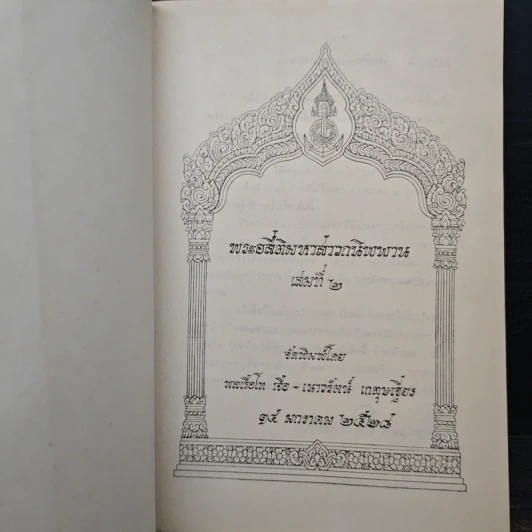 พระอสีติมหาสาวกนิพพาน
เล่มที่ ๒
จัดพิมพ์โดย
พลเรือโท เชื้อ - เนาวรัตน์ เกตุษเฐียร
๑๙ มกราคม ๒๕๒๘